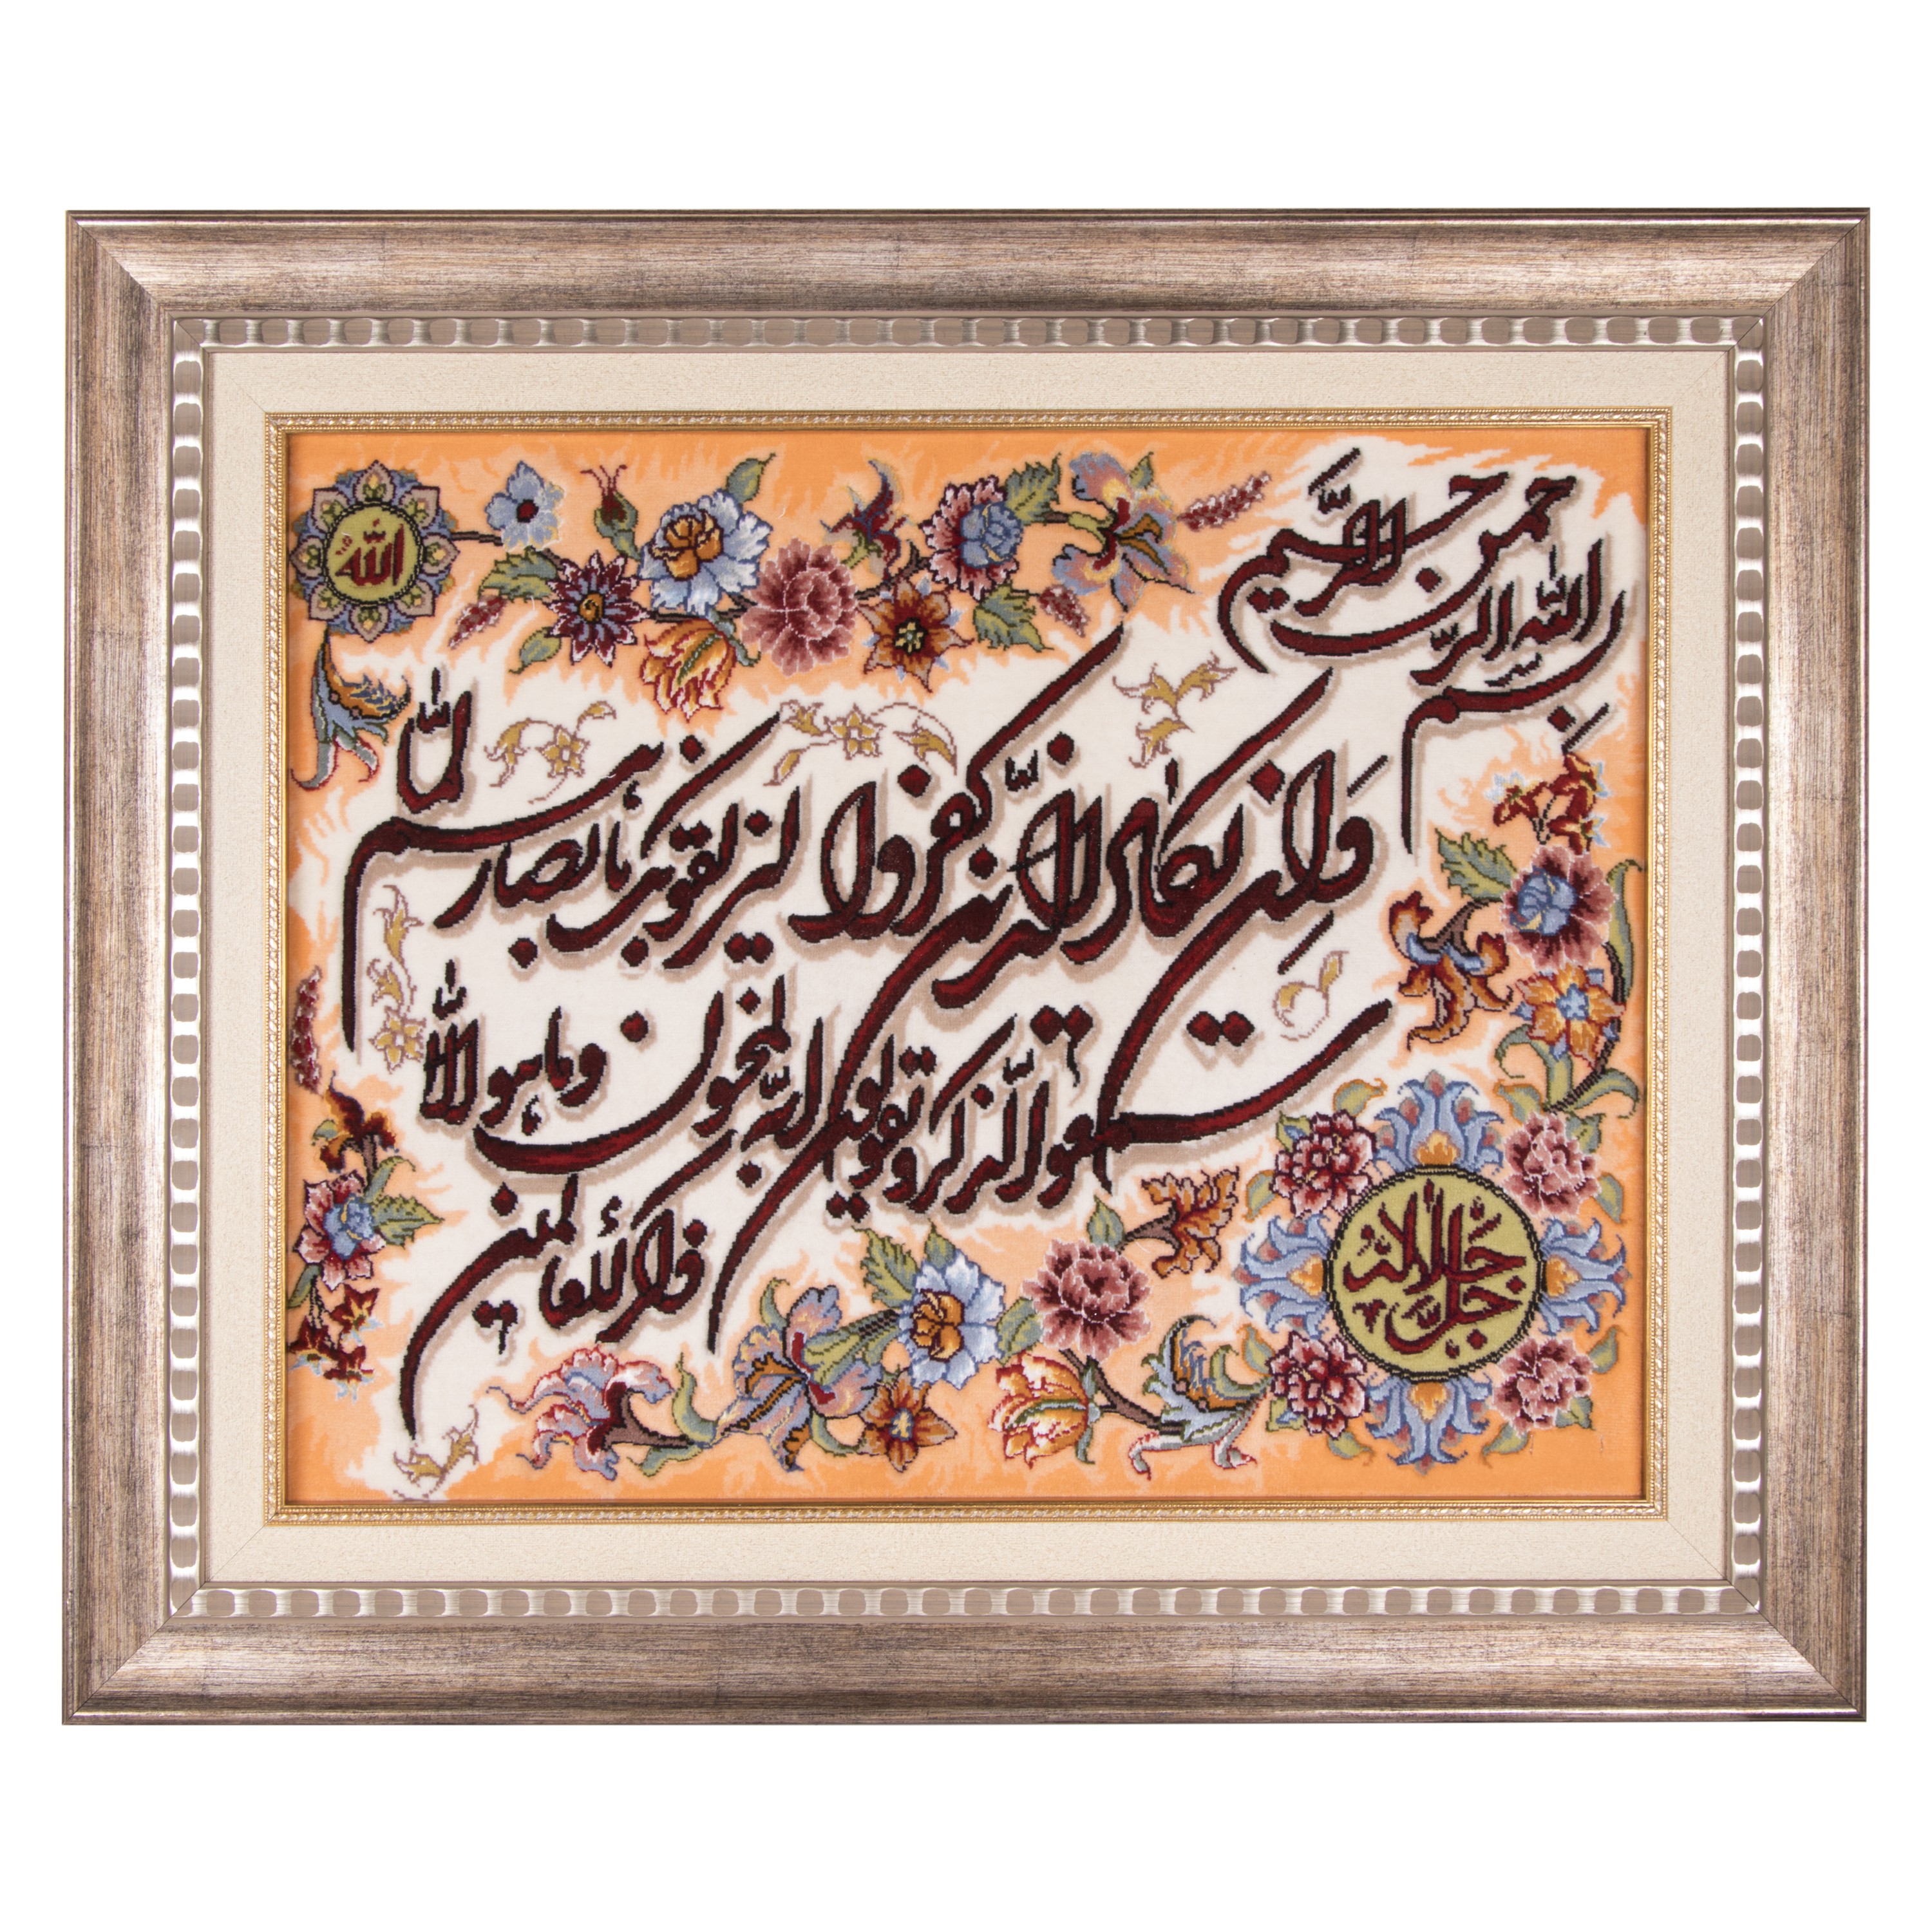 بسم الله الرحمن الرحیم
وان یکاد الذین کفروا لیزلقونک بابصارهم لما
سمعوا الذکر و یقولون انه لمجنون وما هو الا
ذکر للعالمین
الله
جل جلاله